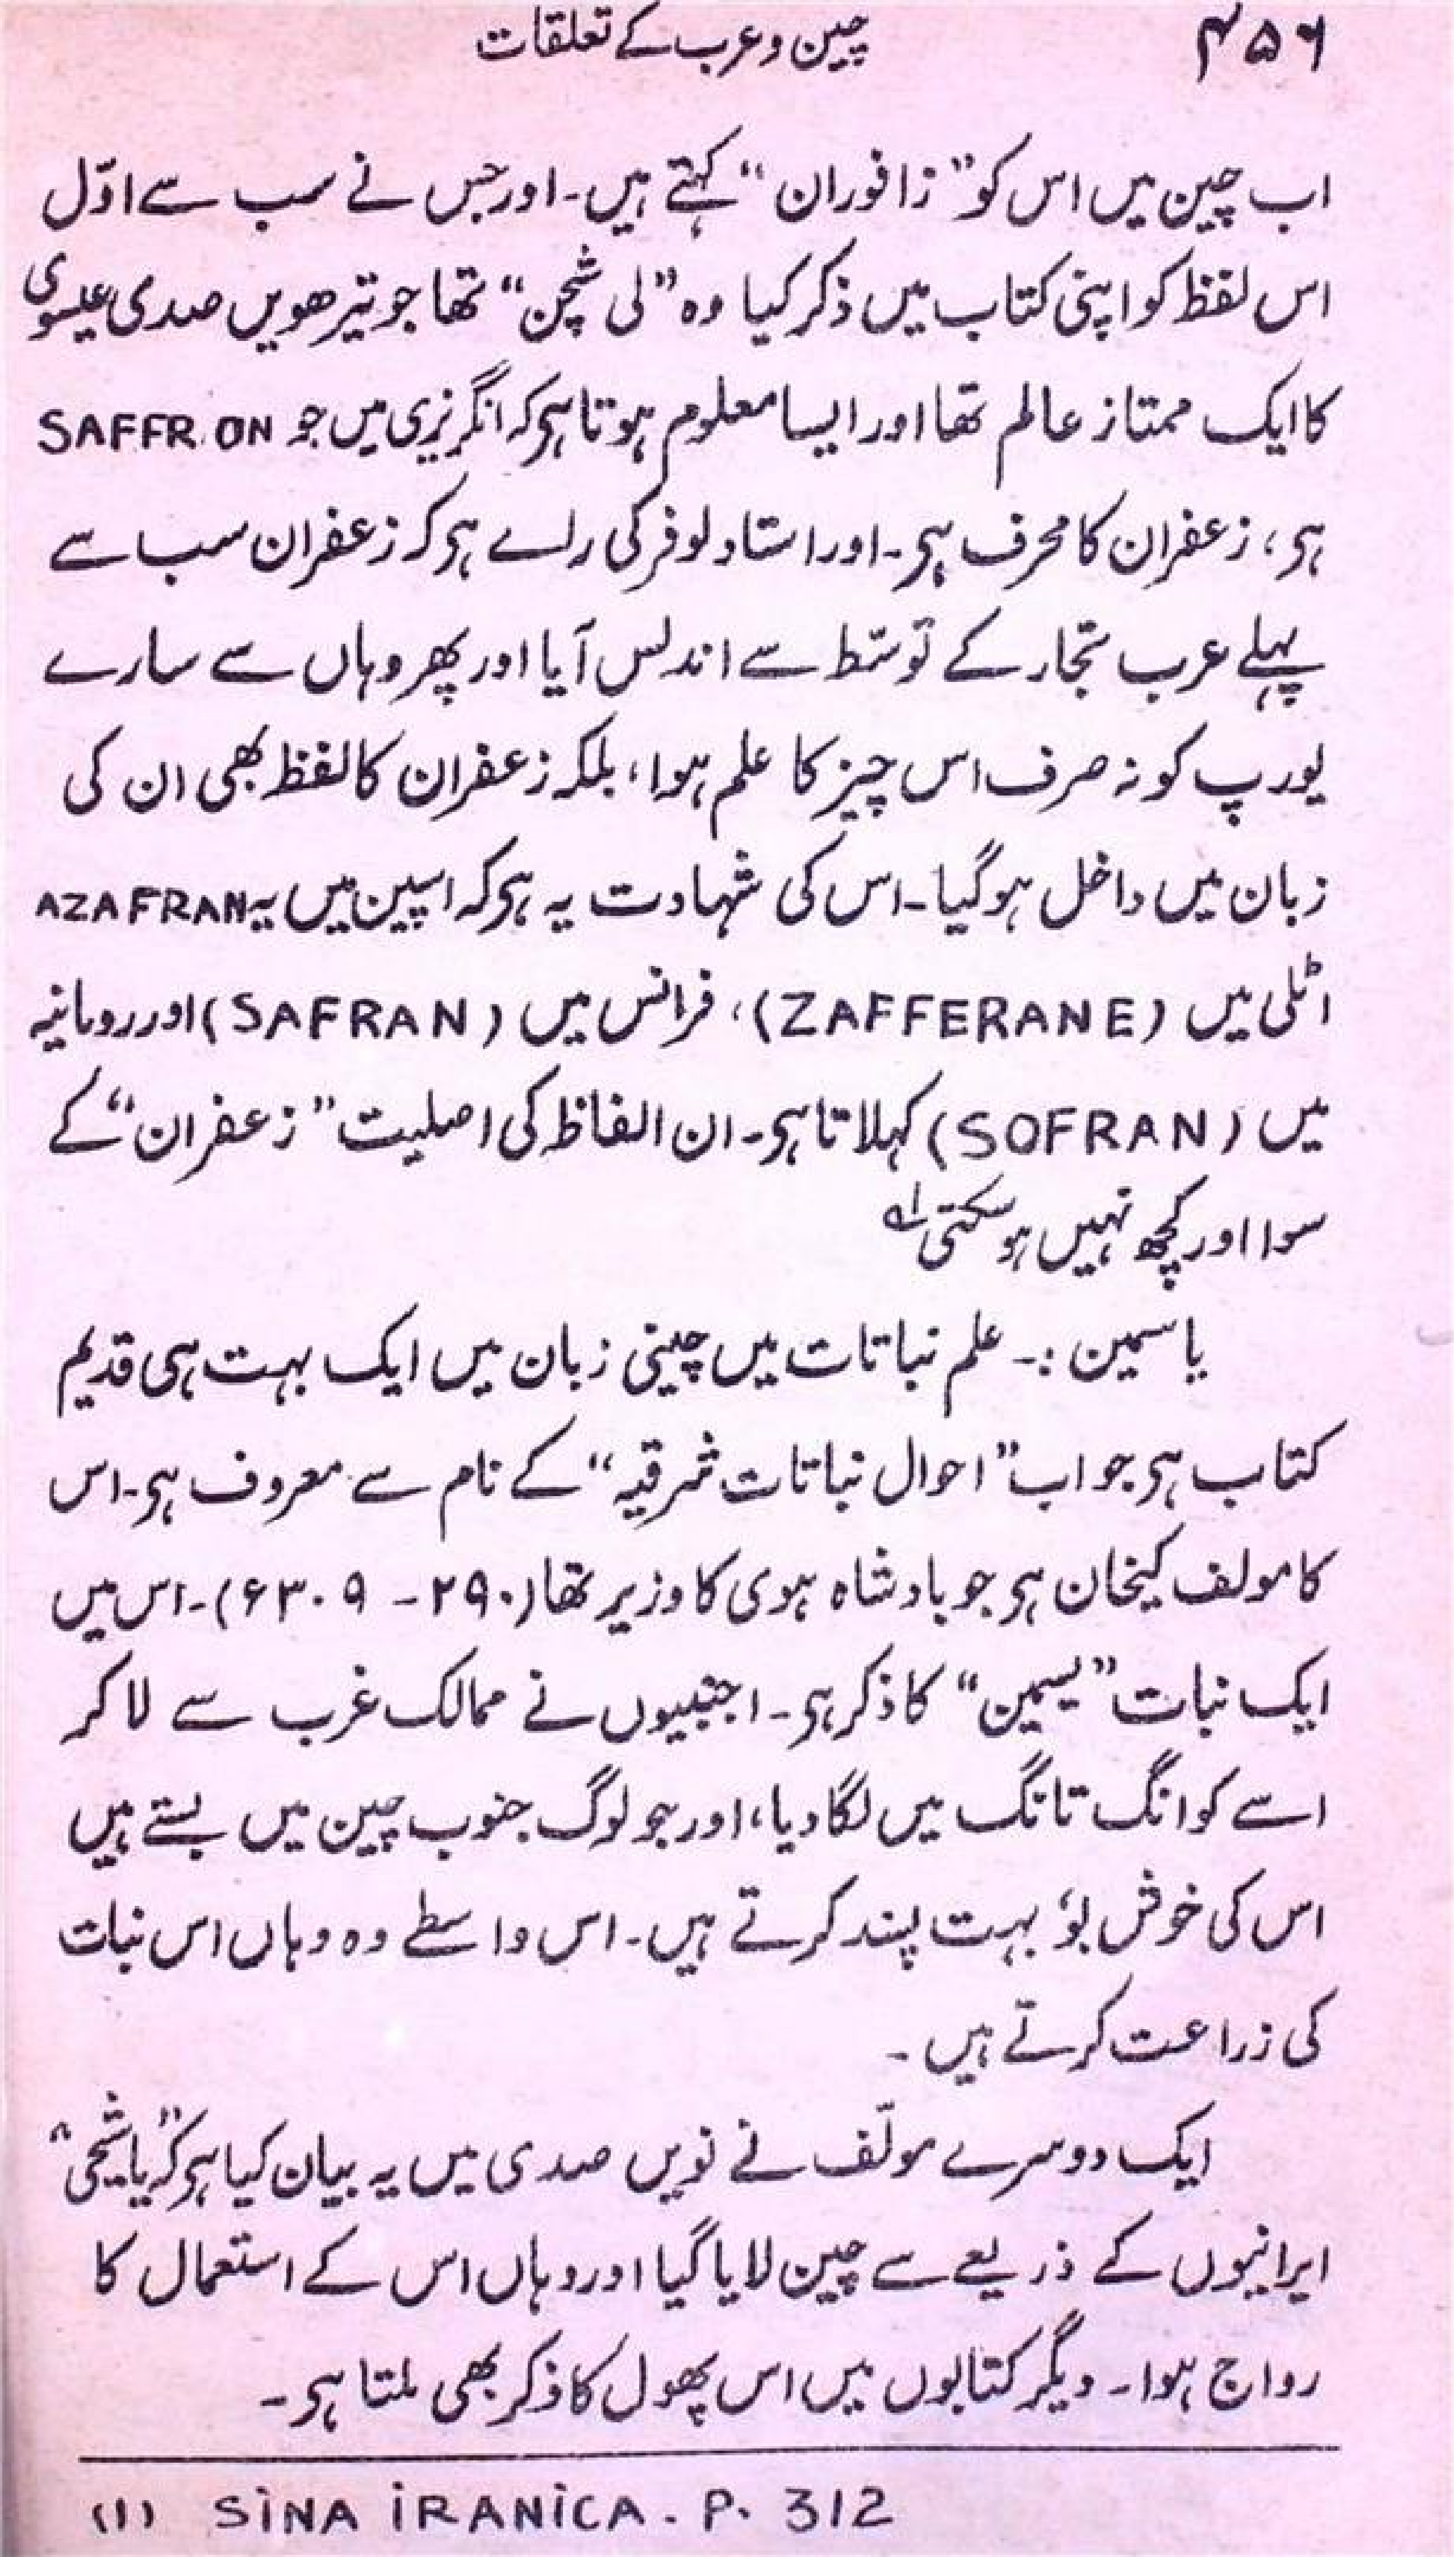 ۴۵۶ چین و عرب کے تعلقات
اب چین میں اس کو ”زافوران“ کہتے ہیں۔ اور جس نے سب سے اوّل
اس لفظ کو اپنی کتاب میں ذکر کیا وہ ”لی شچن“ تھا جو تیرھویں صدی عیسوی
کا ایک ممتاز عالم تھا اور ایسا معلوم ہوتا ہی کہ انگریزی میں جو SAFFRON
ہی، زعفران کا محرف ہی۔ اور استاد لوفر کی راے ہی کہ زعفران سب سے
پہلے عرب تجار کے توسّط سے اندلس آیا اور پھر وہاں سے سارے
یورپ کو نہ صرف اس چیز کا علم ہوا، بلکہ زعفران کا لفظ بھی ان کی
زبان میں داخل ہوگیا۔ اس کی شہادت یہ ہی کہ اسپین میں یہ AZAFRAN
اٹلی میں (ZAFFERANE)، فرانس میں (SAFRAN) اور رومانیہ
میں (SOFRAN) کہلاتا ہی۔ ان الفاظ کی اصلیت ”زعفران“ کے
سوا اور کچھ نہیں ہوسکتی لہ
یاسمین :۔ علم نباتات میں چینی زبان میں ایک بہت ہی قدیم
کتاب ہی جو اب ”احوال نباتات شرقیہ“ کے نام سے معروف ہی۔ اس
کا مولف کیخان ہی جو بادشاہ ہوی کا وزیر تھا (۲۹۰ - ۳۰۹ء)۔ اس میں
ایک نبات ”یسمین“ کا ذکر ہی۔ اجنبیوں نے ممالک غرب سے لاکر
اسے کوانگ تانگ میں لگا دیا، اور جو لوگ جنوب چین میں بستے ہیں
اس کی خوش بوٗ بہت پسند کرتے ہیں۔ اس واسطے وہ وہاں اس نبات
کی زراعت کرتے ہیں۔
ایک دوسرے مولّف نے نویں صدی میں یہ بیان کیا ہی کہ
ایرانیوں کے ذریعے سے چین لایا گیا اور وہاں اس کے استعمال کا
رواج ہوا۔ دیگر کتابوں میں اس پھول کا ذکر بھی ملتا ہی۔
(1) SINA IRANICA. P. 312